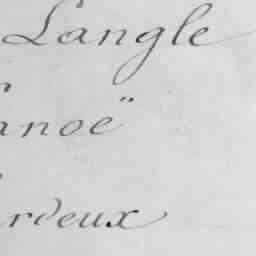 Langle
anoë
rdeux